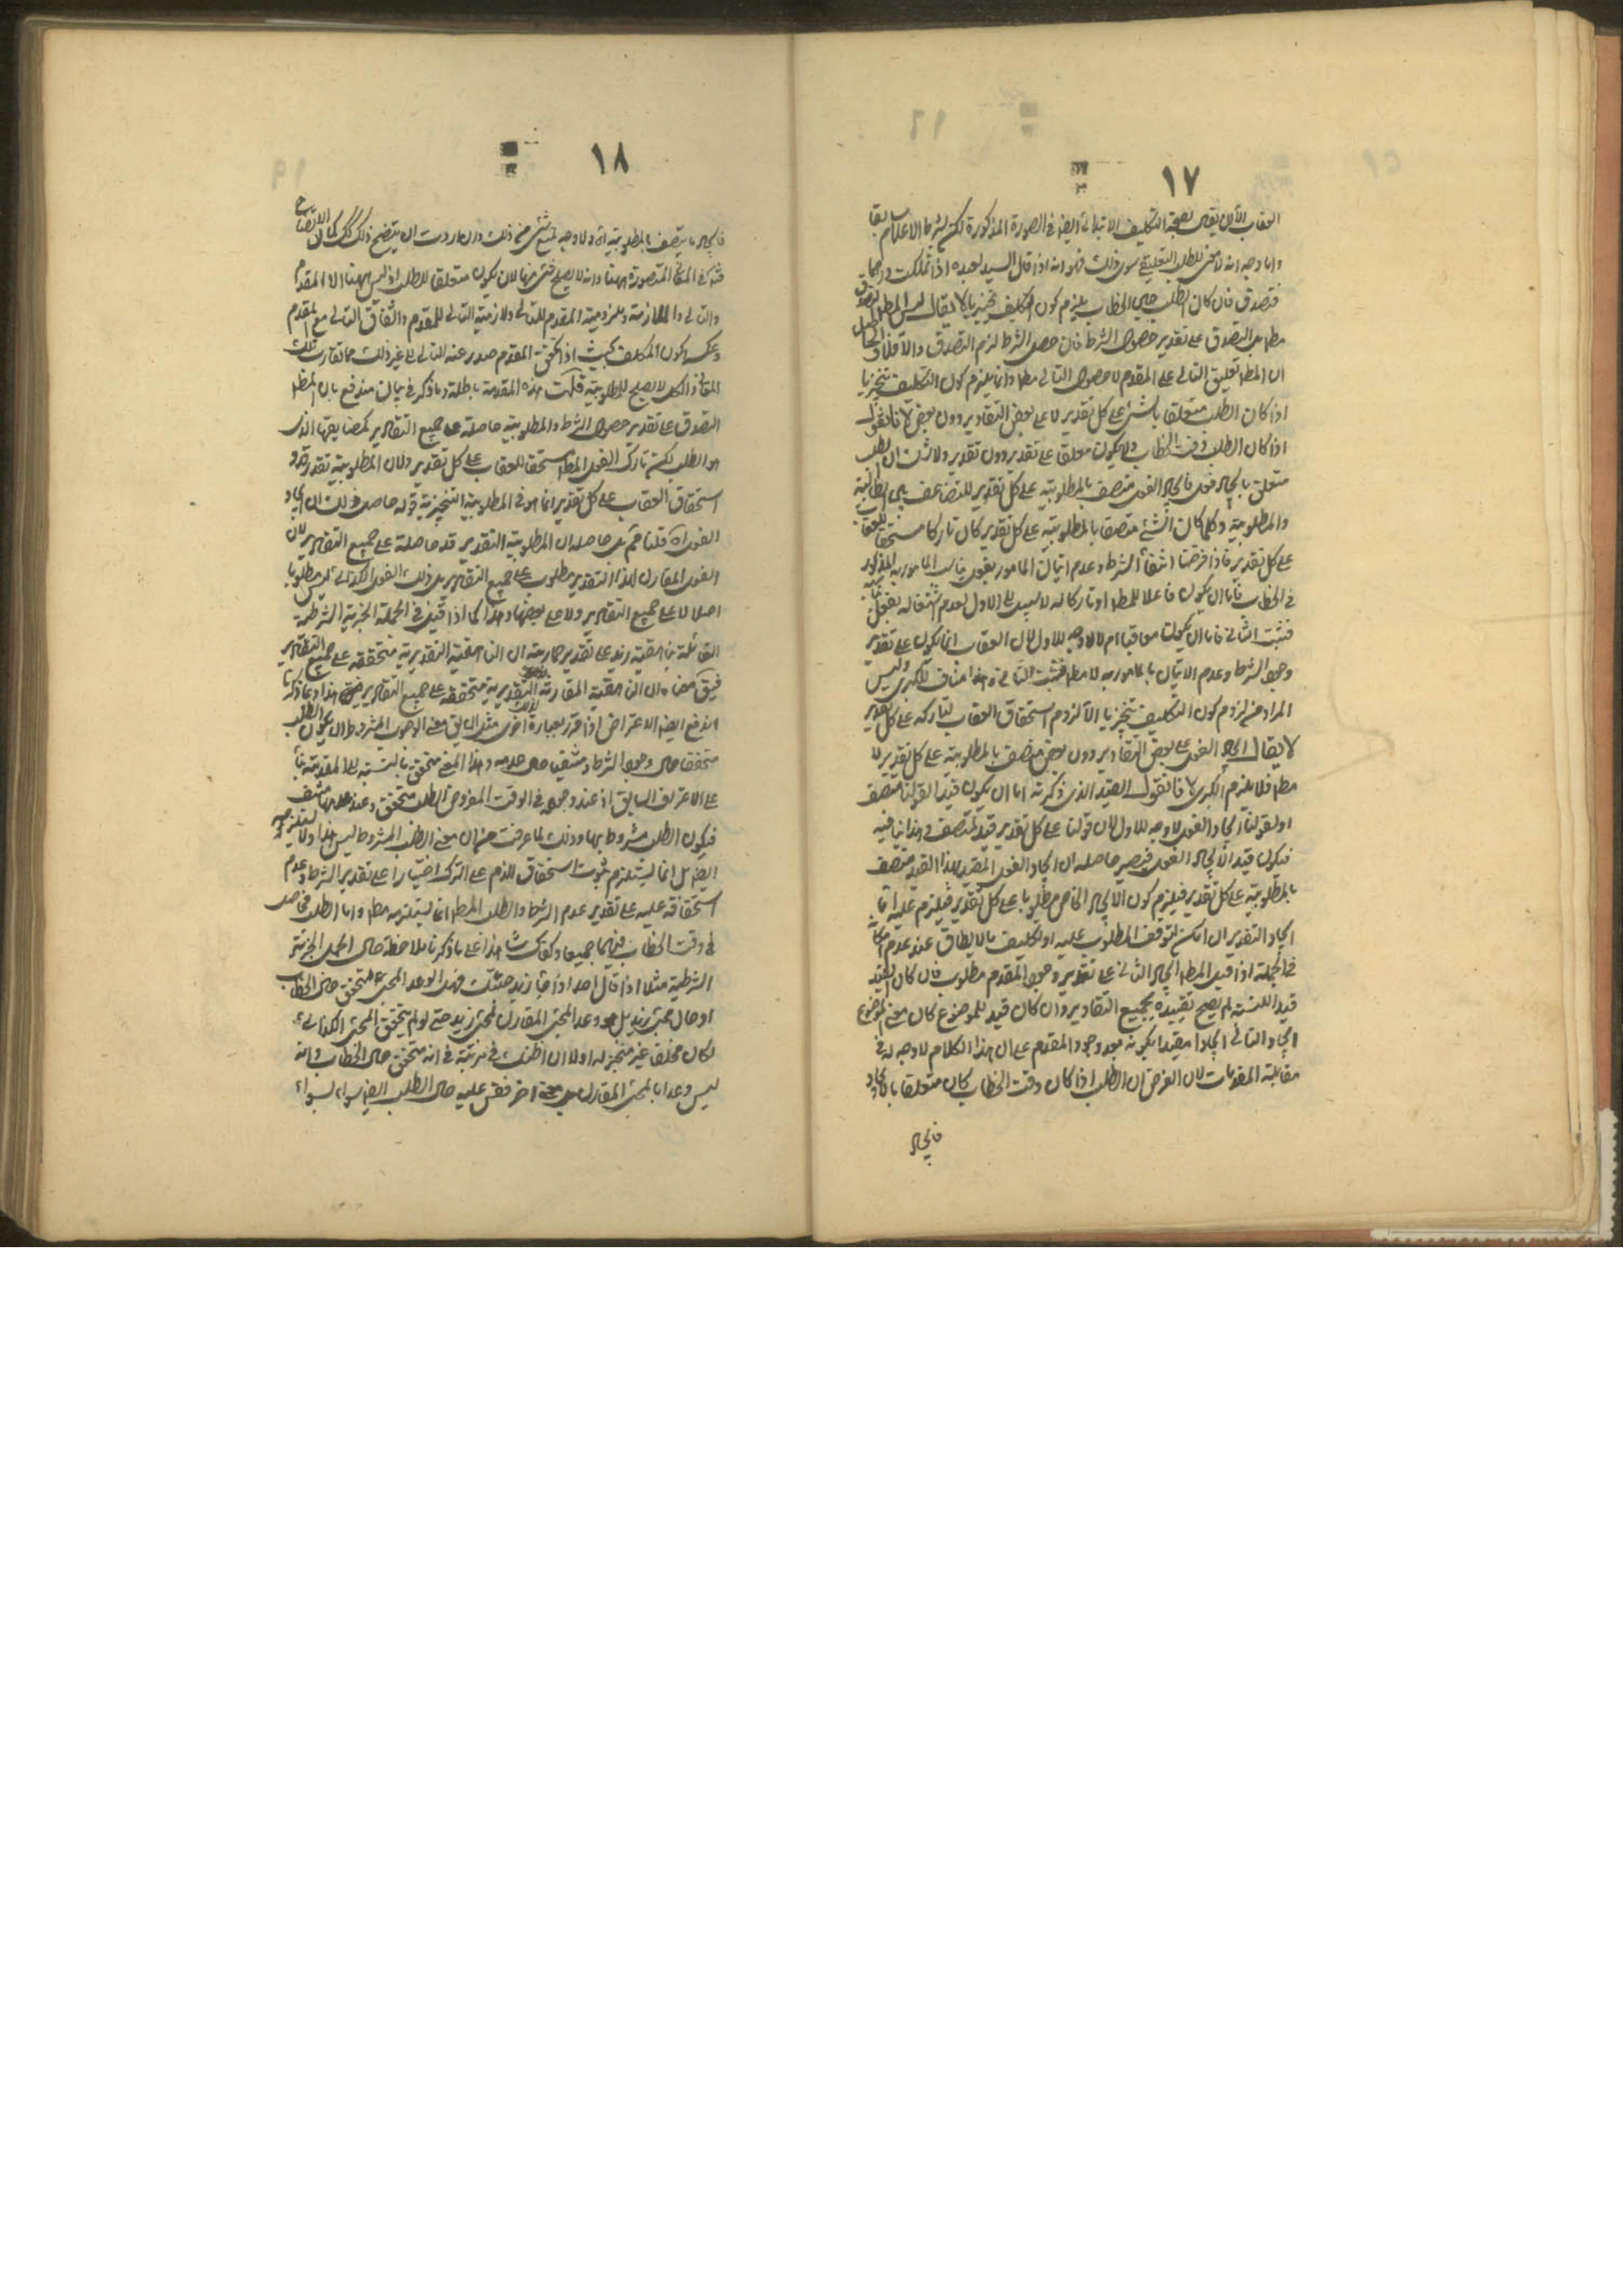 ١٧
العقاب الا ان يقول بصحة التكليف الابتدائى ايضا فى الصورة المذكورة لكن
واما وجه انه لا معنى للطلب التعليقى سوى ذلك فهو انه اذا قال السيد لعبده اذا تملكت درهما
فتصدق فان كان الطلب حين الخطاب يلزم كون التكليف تنجيزيا لا يقال ليس المط التصدق
مطلقا بل التصدق على تقدير حصول الشرط فان حصل الشرط لزم التصدق والا فلا
ان المط تعليق التالى على المقدم لا حصول التالى مط وانما يلزم كون التكليف تنجيزيا
اذا كان الطلب متعلقا بالشئ على كل تقدير لا على بعض التقادير دون بعض لانا نقول
اذا كان الطلب وقت الخطاب ولا يكون معلقا على تقدير دون تقدير ولا شك ان الطلب
متعلق بايجاد فعل فايجاد الفعل متصف بالمطلوبية على كل تقدير للتضايف بين الطالبية
والمطلوبية وكلما كان الشئ متصفا بالمطلوبية على كل تقدير كان تاركه مستحقا للعقاب
على كل تقدير فاذا فرضنا انتفاء الشرط وعدم اتيان المامور بفعل المامور به المذكور
فى الخطاب فاما ان يكون فاعلا للمط او تاركا له لا سبيل الى الاول لعدم اشتغاله بفعل
فثبت الثانى فاما ان يكون معاقبا ام لا لا وجه للاول لان العقاب انما يكون على تقدير
وجود الشرط وعدم الاتيان بالمامور به لا مط فثبت الثانى وهذا مناف للكبرى وليس
المراد من لزوم كون التكليف تنجيزيا الا لزوم استحقاق العقاب لتاركه على كل تقدير
لا يقال ايجاد الفعل على بعض التقادير دون بعض متصف بالمطلوبية على كل تقدير لا
مط فلا يلزم الكبرى لانا نقول القيد الذى ذكرته اما ان يكون قيدا لقولنا متصف
او لقولنا ايجاد الفعل لا وجه للاول لان قولنا على كل تقدير قيد لمتصف وهذا ينافيه
فيكون قيد الايجاد الفعل فيصير حاصله ان ايجاد الفعل المقيد بهذا القيد متصف
بالمطلوبية على كل تقدير فيلزم كون الايجاد الخاص مطلوبا على كل تقدير فيلزم عليه
ايجاد التقدير ان امكن لتوقف المطلوب عليه او تكليف بالا يطاق عند عدم امكانه
فى الجملة اذا قيل المط ايجاد التالى على تقدير وجود المقدم مطلوب فان كان القيد
قيد النسبة لم يصح تقييده بجميع التقادير وان كان قيد للموضوع كان معنى الموضوع
ايجاد التالى ايجادا مقيدا بكونه بعد وجود المقدم على ان هذا الكلام لا وجه له فى
مقابلة المقدمات لان الفرض ان الطلب اذا كان وقت الخطاب كان متعلقا بالايجاد
فايجاد
١٨
فايجاده يتصف بالمطلوبية اه ولا وجه لمنع شئ من ذلك وان اردت ان يتضح ذلك كمال الاتضاح
المعانى المتصورة ههنا وانه لا يصلح شئ منها لان يكون متعلقا للطلب اذ ليس ههنا الا المقدم
والتالى والملازمة وملزومية المقدم للتالى ولازمية التالى للمقدم واتفاق التالى مع المقدم
وعكسه وكون المكلف بحيث اذا تحقق المقدم صدر عنه التالى الى غير ذلك مما تقارب تلك
المعانى والكل لا يصلح للمطلوبية قلت هذه المقدمة باطلة وما ذكر فى بيانه مندفع بان المط
التصدق على تقدير حصول الشرط والمطلوبية حاصلة على جميع التقادير كمضايفها الذى
هو الطلب لكن تارك الفعل المط مستحقا للعقاب على كل تقدير ولان المطلوبية تقديرية و
استحقاق العقاب على كل تقدير انما هو فى المطلوبية التنجيزية قوله حاصل ذلك ان ايجاد
الفعل اه قلنا نعم بل حاصله ان المطلوبية التقديرية قد حاصلة على جميع التقادير لان
الفعل المقارن لهذا التقدير مطلوب على جميع التقادير بل ذلك الفعل الكذائى ليس مطلوبا
اصلا لا على جميع التقادير ولا على بعضها وهذا كما اذا قيل فى الجملة الخبرية الشرطية
القائلة بناهقية زيد على تقدير حماريته ان الناهقية التقديرية متحققة على جميع التقادير
فيق معناه ان الناهقية المقارنة التقديرية متحققة على جميع التقادير هذا وبما ذكرنا
اندفع ايضا الاعتراض اذا قرر بعبارة اخرى مثل ان يق معنى الوجوب المشروط ان يكون الطلب
متحققا حال وجود الشرط ومنتفيا حال عدمه وهذا المعنى متحقق بالنسبة الى المقدمة
على الاعتراف السابق اذ عند وجوده فى الوقت المفروض الطلب متحقق وعند عدمها منتف
فيكون الطلب مشروطا بها وذلك لما عرفت من ان معنى الطلب المشروط ليس هذا ولا يستلزمه
ايضا بل انما يستلزم ثبوت استحقاق للذم على الترك اختيارا على تقدير الشرط وعدم
استحقاقه عليه على تقدير عدم الشرط والطلب المط انما يستلزمه مط واما الطلب فحاصل
فى وقت الخطاب فيهما جميعا وكفاك شاهدا على ما ذكرنا ملاحظة حال الجمل الخبرية
الشرطية مثلا اذا قال احد اذا جاء زيد جئتك فهل الوعد المجئ متحقق حال الخطاب
او حال مجئ زيد بل هو وعد المجئ المقارن لمجئ زيد حتى لو لم يتحقق المجئ الكذائى
لكان مخلفا غير منجز له اولا ان اظنك فى مرتبة فى انه متحقق حال الخطاب وانه
ليس وعدا بالمجئ المقارن بل معنى اخر فقس عليه حال الطلب ايضا سواء بسواء